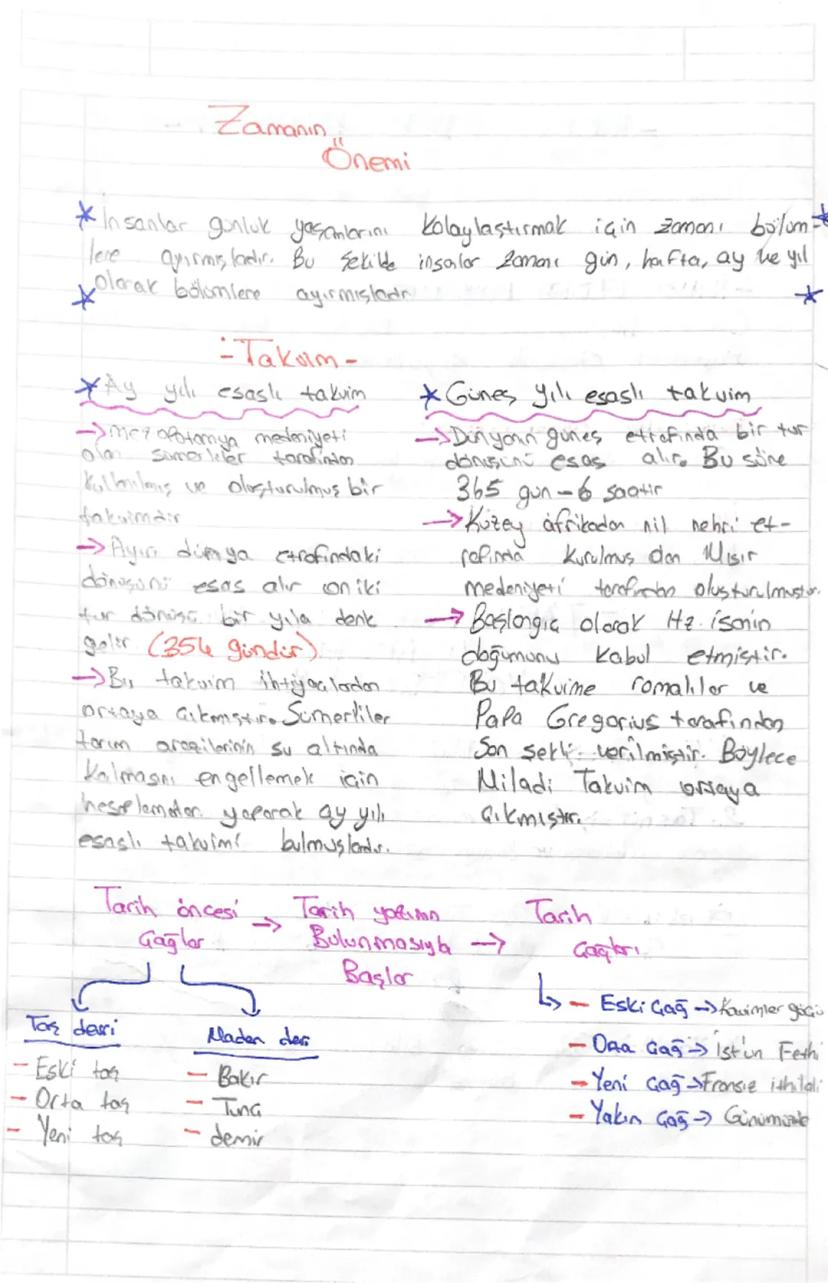 Zamanın
Önemi
* İnsanlar günlük yaşamlarını kolaylaştırmak için zamanı bölüm-
lere ayırmışladır. Bu şekilde insanlar zamanı gün, hafta, ay ve yıl
olarak bölümlere ayırmışladır
-Takvim-
* Ay yılı esaslı takvim
→ Mezopotamya medeniyeti
olan sümerliler tarafından
kullanılmış ve oluşturulmuş bir
takvimdir
→ Ayın dünya etrafındaki
dönüşünü esas alır on iki
tur dönüşü bir yıla denk
gelir (354 gündür)
→ Bu takvim ihtiyaçlardan
ortaya çıkmıştır. Sümerliler
tarım arazilerinin su altında
kalmasını engellemek için
hesaplamalar yaparak ay yılı
esaslı takvimi bulmuşlardır.
* Güneş yılı esaslı takvim
→ Dünyanın güneş etrafında bir tur
dönüşünü esas alır. Bu süre
365 gün - 6 saatir
→ Kuzey afrikadan nil nehri et-
rafında kurulmuş olan Mısır
medeniyeti tarafından oluşturulmuştur.
→ Başlangıç olarak Hz. isanın
doğumunu kabul etmiştir.
Bu takvime romalılar ve
Papa Gregorius tarafından
Son şekli verilmiştir. Böylece
Miladi Takvim ortaya
çıkmıştır.
Tarih öncesi
Çağlar
→ Tarih yazının
Bulunmasıyla →
Başlar
Tarih
Çağları
Taş devri
- Eski taş
- Orta taş
- Yeni taş
Maden devri
- Bakır
- Tunç
- demir
- Eski Çağ → Kavimler göçü
- Orta Çağ → İst'un Fethi
- Yeni Çağ → Fransız ihtilali
- Yakın Çağ → Günümüzde